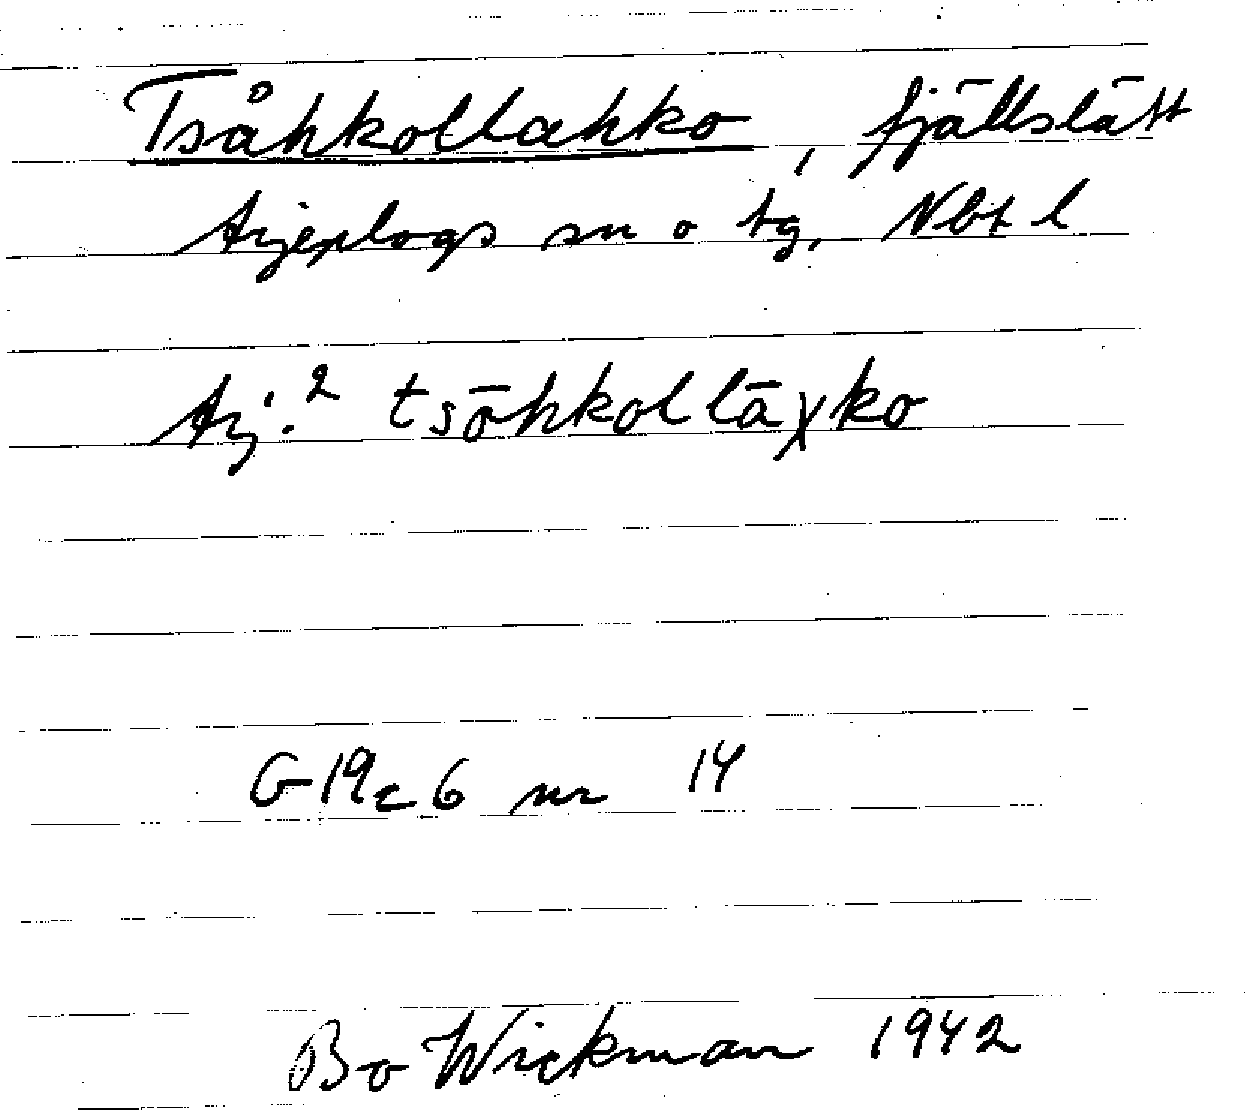 Tsåhkollahko, fjällslätt
Arjeplogs sn o tg, Nbt l
Arj.² tsō̬hkol lāχko
G19c6 nr 14
Bo Wickman 1942